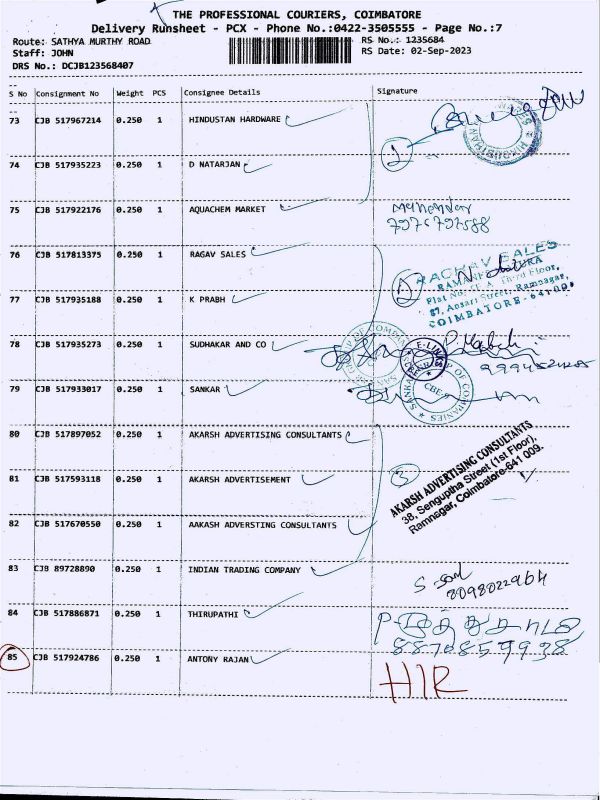 THE PROFESSIONAL COURIERS, COIMBATORE
Delivery Runsheet - PCX - Phone No.:0422-3505555 - Page No.:7
Route: SATHYA MURTHY ROAD RS No.: 1235684
Staff: JOHN RS Date: 02-Sep-2023
DRS No.: DCJB123568407
S No Consignment No Weight PCS Consignee Details Signature
73 CJB 517967214 0.250 1 HINDUSTAN HARDWARE
74 CJB 517935223 0.250 1 D NATARJAN
75 CJB 517922176 0.250 1 AQUACHEM MARKET
76 CJB 517813375 0.250 1 RAGAV SALES
RAGHAV SALES
77 CJB 517935188 0.250 1 K PRABH
87, Ansari Street, Ramnagar,
COIMBATORE-
78 CJB 517935273 0.250 1 SUDHAKAR AND CO
E-LINKS
79 CJB 517933017 0.250 1 SANKAR
CBE-9
80 CJB 517897052 0.250 1 AKARSH ADVERTISING CONSULTANTS
AKARSH ADVERTISING CONSULTANTS
38, Senguptha Street (1st Floor),
Ramnagar, Coimbatore-641 009.
81 CJB 517593118 0.250 1 AKARSH ADVERTISEMENT
3
82 CJB 517670550 0.250 1 AAKASH ADVERSTING CONSULTANTS
83 CJB 89728890 0.250 1 INDIAN TRADING COMPANY
84 CJB 517886871 0.250 1 THIRUPATHI
8870859938
85 CJB 517924786 0.250 1 ANTONY RAJAN